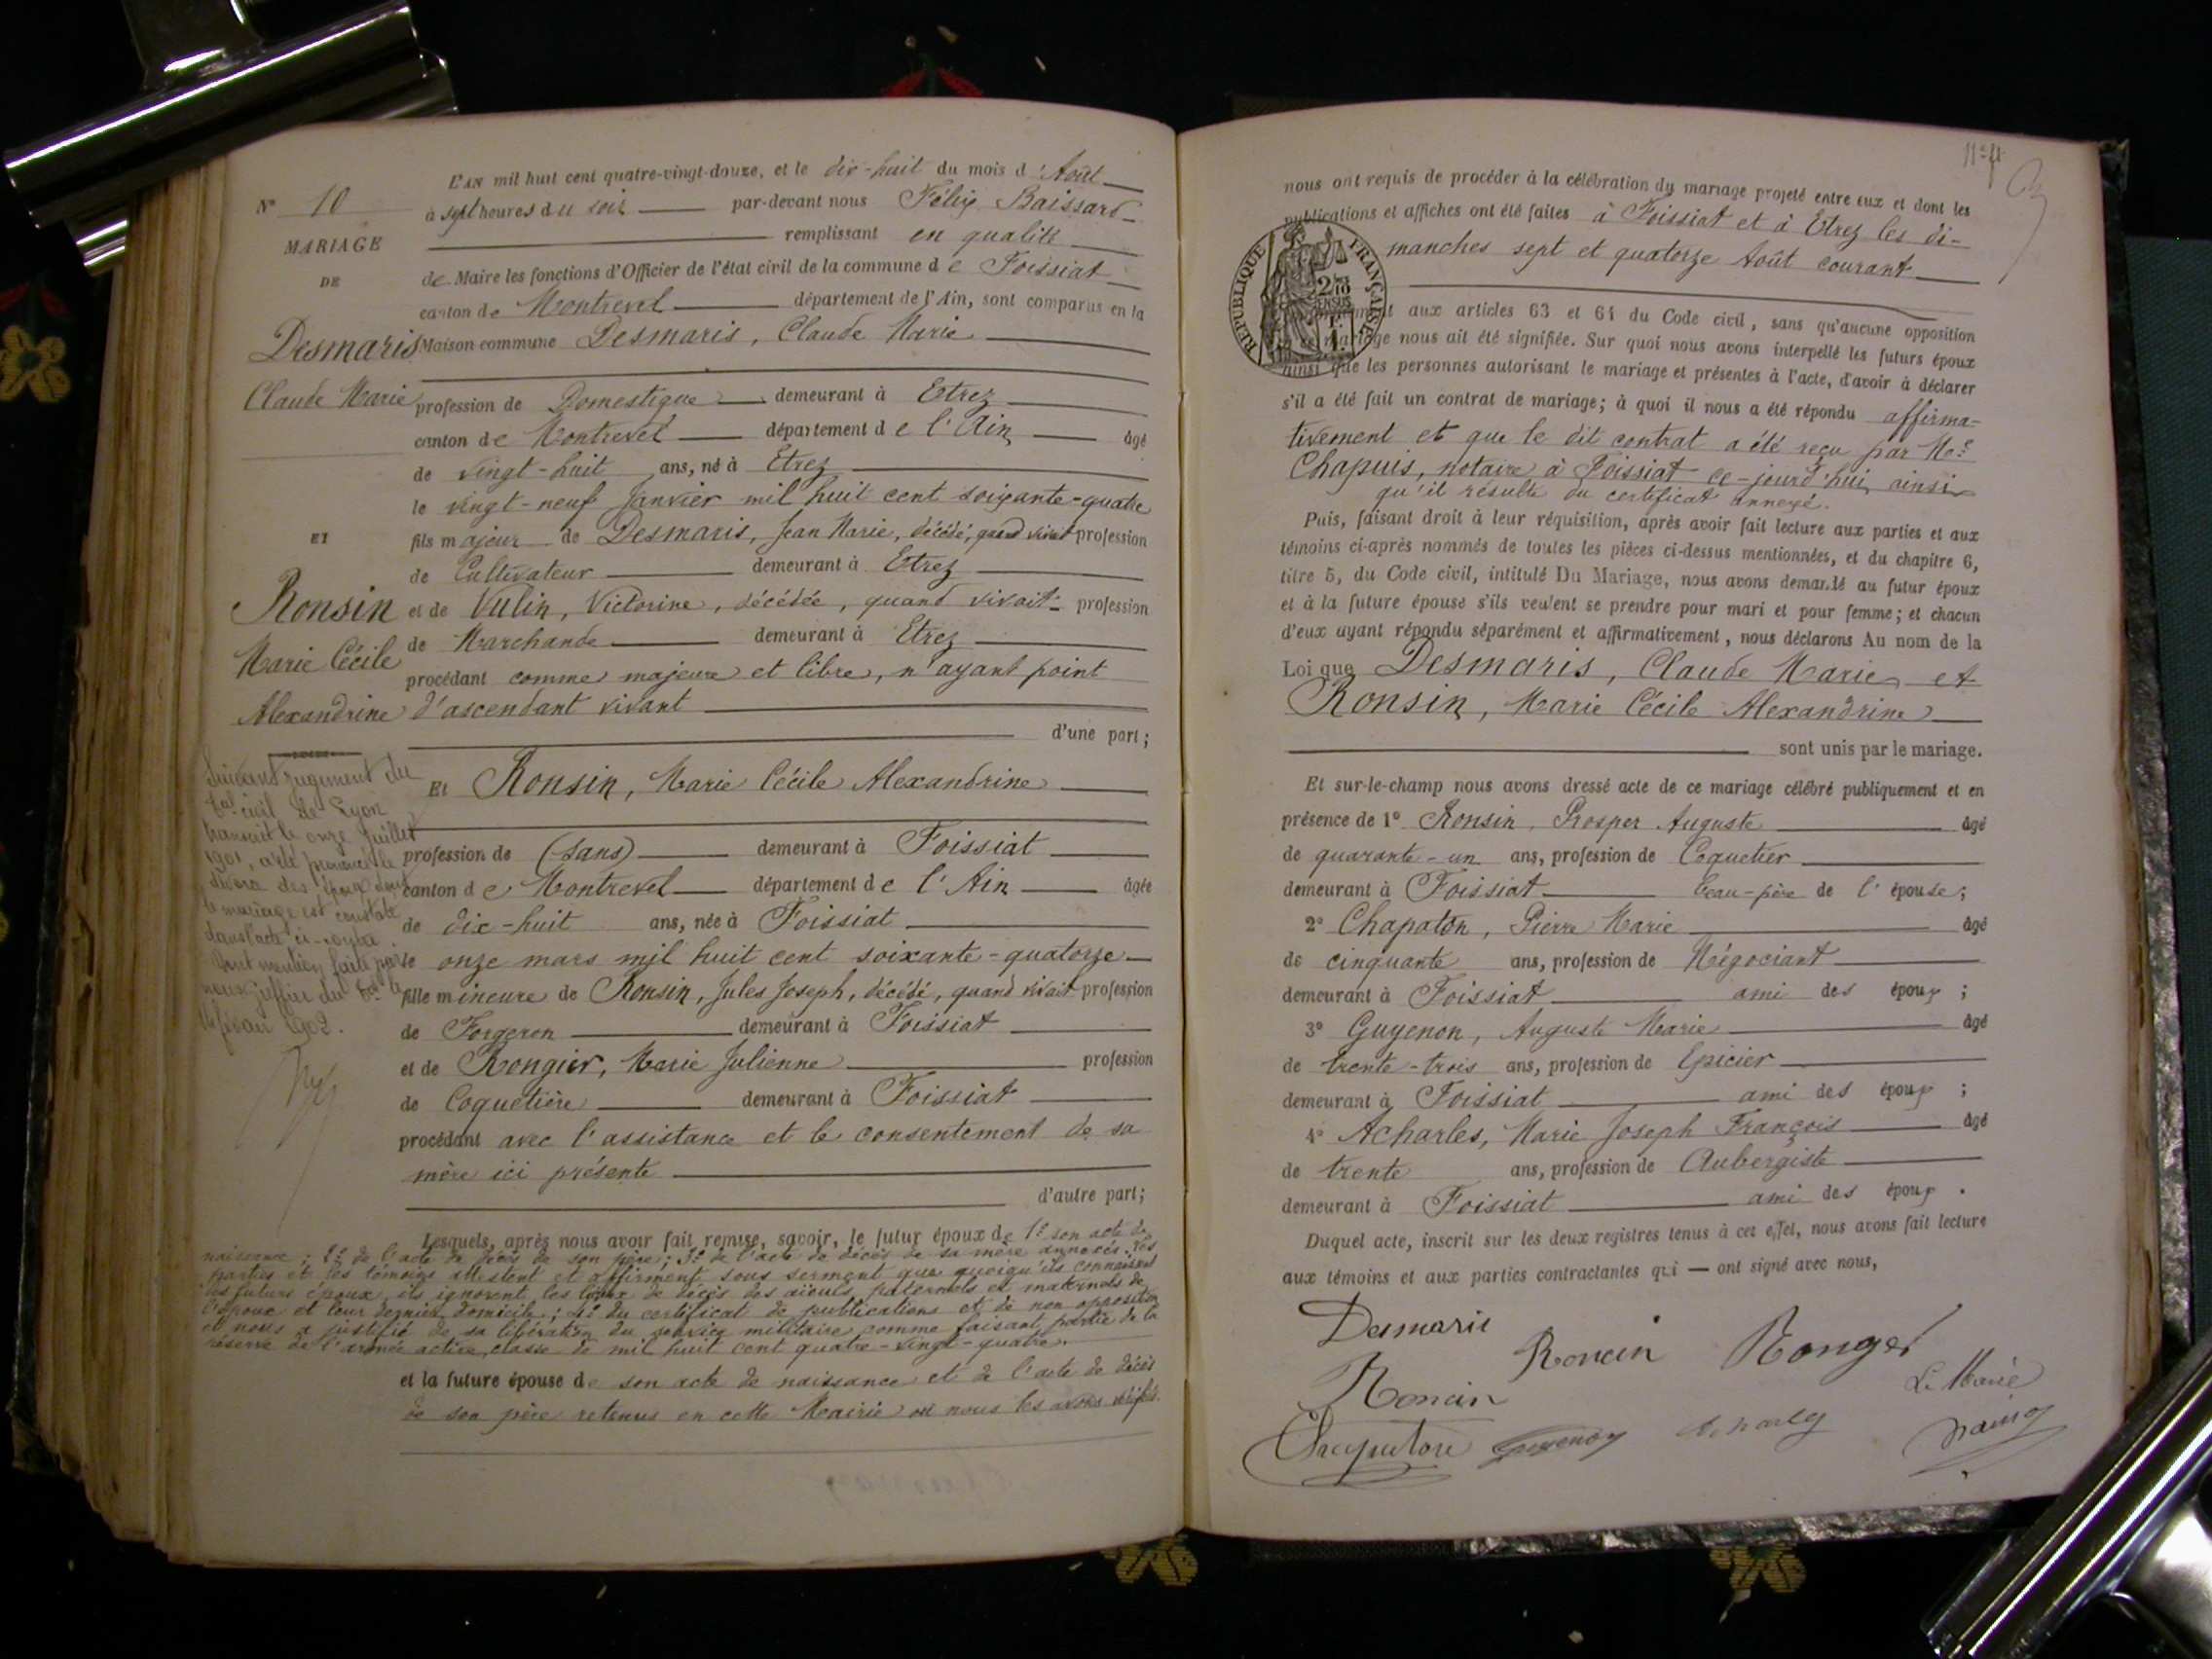 L'AN mil huit cent quatre-vingt-douze, et le dix-huit du mois d'Août
N° 10
à sept heures du soir par-devant nous Félix Baissard
MARIAGE
remplissant en qualité
DE
de Maire les fonctions d'Officier de l'état civil de la commune de Foissiat
canton de Montrevel département de l'Ain, sont comparus en la
Desmaris
Maison commune Desmaris, Claude Marie
Claude Marie
profession de Domestique demeurant à Etrez
canton de Montrevel département de l'Ain âgé
de vingt-huit ans, né à Etrez
le vingt-neuf Janvier mil huit cent soixante-quatre
ET
fils majeur de Desmaris, Jean Marie, décédé, quand vivait profession
de Cultivateur demeurant à Etrez
Ronsin
et de Vulin, Victorine, décédée, quand vivait profession
Marie Cécile
de Marchande demeurant à Etrez
procédant comme majeur et libre, n'ayant point
Alexandrine
d'ascendant vivant
d'une part;
Suivant jugement du
tal civil de Lyon
transcrit le onze Juillet
1901, a été prononcé le
divorce des époux dont
le mariage est constaté
dans l'acte ci-contre.
Dont mention faite par
nous, greffier du tal le
14 février 1902.
Et Ronsin, Marie Cécile Alexandrine
profession de (sans) demeurant à Foissiat
canton de Montrevel département de l'Ain âgée
de dix-huit ans, née à Foissiat
le onze mars mil huit cent soixante-quatorze
fille mineure de Ronsin, Jules Joseph, décédé, quand vivait profession
de Forgeron demeurant à Foissiat
et de Rongier, Marie Julienne profession
de Coquetière demeurant à Foissiat
procédant avec l'assistance et le consentement de sa
mère ici présente
d'autre part;
Lesquels, après nous avoir fait remise, savoir, le futur époux de 1° son acte de
naissance; 2° de l'acte de décès de son père; 3° de l'acte de décès de sa mère annexés. Les
parties et les témoins attestent et affirment sous serment que quoiqu'ils connaissent
les futurs époux, ils ignorent les lieux de décès des aïeuls paternels et maternels de
l'époux et leur dernier domicile; 4° du certificat de publications et de non opposition
et nous a justifié de sa libération du service militaire comme faisant partie de la
réserve de l'armée active, classe de mil huit cent quatre-vingt-quatre.
et la future épouse de son acte de naissance et de l'acte de décès
de son père retenus en cette Mairie où nous les avons vérifiés.
nous ont requis de procéder à la célébration du mariage projeté entre eux et dont les
publications et affiches ont été faites à Foissiat et à Etrez les di-
manches sept et quatorze Août courant
RÉPUBLIQUE FRANÇAISE
2/10
EN SUS
1F.
aux articles 63 et 64 du Code civil, sans qu'aucune opposition
mariage nous ait été signifiée. Sur quoi nous avons interpellé les futurs époux
ainsi que les personnes autorisant le mariage et présentes à l'acte, d'avoir à déclarer
s'il a été fait un contrat de mariage; à quoi il nous a été répondu affirma-
tivement et que le dit contrat a été reçu par Me
Chapuis, notaire à Foissiat ce-jourd'hui, ainsi
qu'il résulte du certificat annexé.
Puis, faisant droit à leur réquisition, après avoir fait lecture aux parties et aux
témoins ci-après nommés de toutes les pièces ci-dessus mentionnées, et du chapitre 6,
titre 5, du Code civil, intitulé Du Mariage, nous avons demandé au futur époux
et à la future épouse s'ils veulent se prendre pour mari et pour femme; et chacun
d'eux ayant répondu séparément et affirmativement, nous déclarons Au nom de la
Loi que Desmaris, Claude Marie et
Ronsin, Marie Cécile Alexandrine
sont unis par le mariage.
Et sur-le-champ nous avons dressé acte de ce mariage célébré publiquement et en
présence de 1° Ronsin, Prosper Auguste âgé
de quarante-un ans, profession de Coquetier
demeurant à Foissiat beau-père de l'épouse;
2° Chapaton, Pierre Marie âgé
de cinquante ans, profession de Négociant
demeurant à Foissiat ami des époux;
3° Guyenon, Auguste Marie âgé
de trente-trois ans, profession de Epicier
demeurant à Foissiat ami des époux;
4° Acharles, Marie Joseph François âgé
de trente ans, profession de Aubergiste
demeurant à Foissiat ami des époux.
Duquel acte, inscrit sur les deux registres tenus à cet effet, nous avons fait lecture
aux témoins et aux parties contractantes qui — ont signé avec nous,
Desmaris
Ronsin Ronger
Ronsin
Le Maire
Guyenon